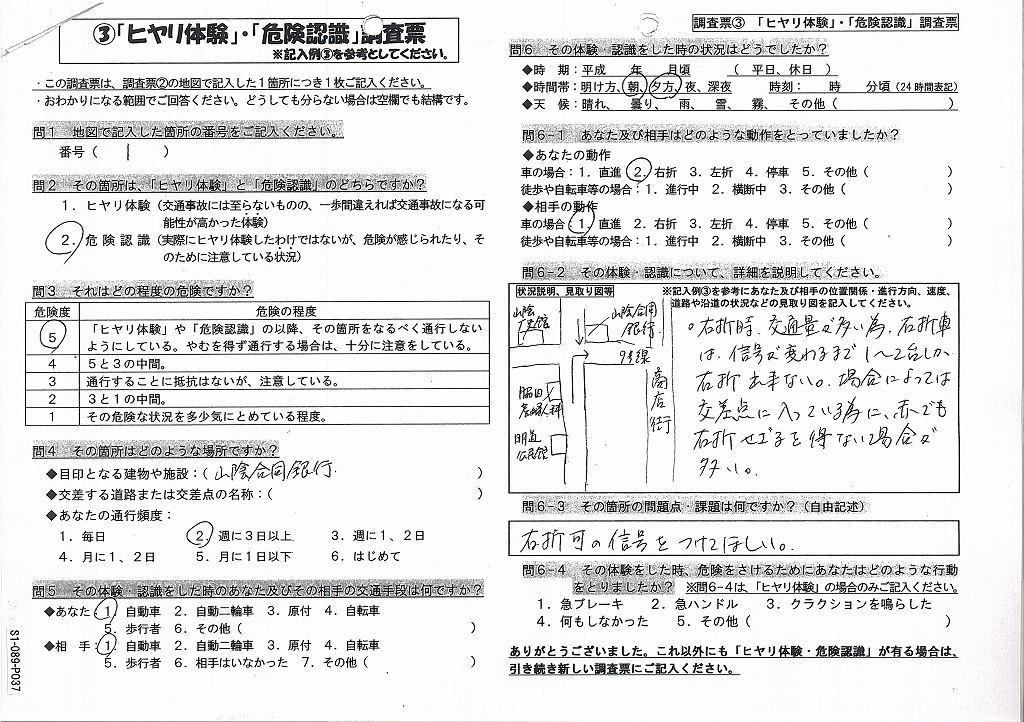 ③「ヒヤリ体験」・「危険認識」調査票
※記入例③を参考としてください。
・この調査票は、調査票②の地図で記入した1箇所につき1枚ご記入ください。
・おわかりになる範囲でご回答ください。どうしても分らない場合は空欄でも結構です。
問1 地図で記入した箇所の番号をご記入ください。
番号( 1 )
問2 その箇所は、「ヒヤリ体験」と「危険認識」のどちらですか?
1.ヒヤリ体験(交通事故には至らないものの、一歩間違えれば交通事故になる可
能性が高かった体験)
2.危険認識(実際にヒヤリ体験したわけではないが、危険が感じられたり、そ
のために注意している状況)
問3 それはどの程度の危険ですか?
危険度 危険の程度
5 「ヒヤリ体験」や「危険認識」の以降、その箇所をなるべく通行しない
ようにしている。やむを得ず通行する場合は、十分に注意をしている。
4 5と3の中間。
3 通行することに抵抗はないが、注意している。
2 3と1の中間。
1 その危険な状況を多少気にとめている程度。
問4 その箇所はどのような場所ですか?
◆目印となる建物や施設:( 山陰合同銀行 )
◆交差する道路または交差点の名称:( )
◆あなたの通行頻度:
1.毎日 2.週に3日以上 3.週に1、2日
4.月に1、2日 5.月に1日以下 6.はじめて
問5 その体験・認識をした時のあなた及びその相手の交通手段は何ですか?
◆あなた:1.自動車 2.自動二輪車 3.原付 4.自転車
5.歩行者 6.その他( )
◆相 手:1.自動車 2.自動二輪車 3.原付 4.自転車
5.歩行者 6.相手はいなかった 7.その他( )
S1-089-P037
調査票③ 「ヒヤリ体験」・「危険認識」調査票
問6 その体験・認識をした時の状況はどうでしたか?
◆時 期:平成 年 月頃 ( 平日、休日 )
◆時間帯:明け方、朝、夕方、夜、深夜 時刻: 時 分頃(24時間表記)
◆天 候:晴れ、 曇り、 雨、 雪、 霧、 その他( )
問6-1 あなた及び相手はどのような動作をとっていましたか?
◆あなたの動作
車の場合:1.直進 2.右折 3.左折 4.停車 5.その他( )
徒歩や自転車等の場合:1.進行中 2.横断中 3.その他( )
◆相手の動作
車の場合:1.直進 2.右折 3.左折 4.停車 5.その他( )
徒歩や自転車等の場合:1.進行中 2.横断中 3.その他( )
問6-2 その体験・認識について、詳細を説明してください。
状況説明、見取り図等
※記入例③を参考にあなた及び相手の位置関係・進行方向、速度、
道路や沿道の状況などの見取り図を記入してください。
山陰
山陰合同
銀行
9号線
商店街
明道
公民館
○右折時、交通量が多い為、右折車
は、信号が変わるまで1〜2台しか
右折出来ない。場合によっては
交差点に入っている為に、赤でも
右折せざるを得ない場合が
多い。
問6-3 その箇所の問題点・課題は何ですか?(自由記述)
右折可の信号をつけてほしい。
問6-4 その体験をした時、危険をさけるためにあなたはどのような行動
をとりましたか? ※問6-4は、「ヒヤリ体験」の場合のみご記入ください。
1.急ブレーキ 2.急ハンドル 3.クラクションを鳴らした
4.何もしなかった 5.その他( )
ありがとうございました。これ以外にも「ヒヤリ体験・危険認識」が有る場合は、
引き続き新しい調査票にご記入ください。